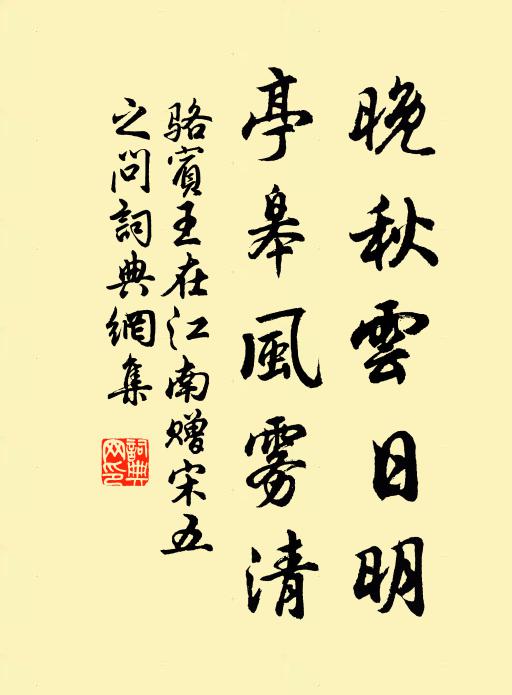 晚秋雲日明
亭皋風雾清
駱賓王在江南贈宋五
之問詞典網集
詞典
网印